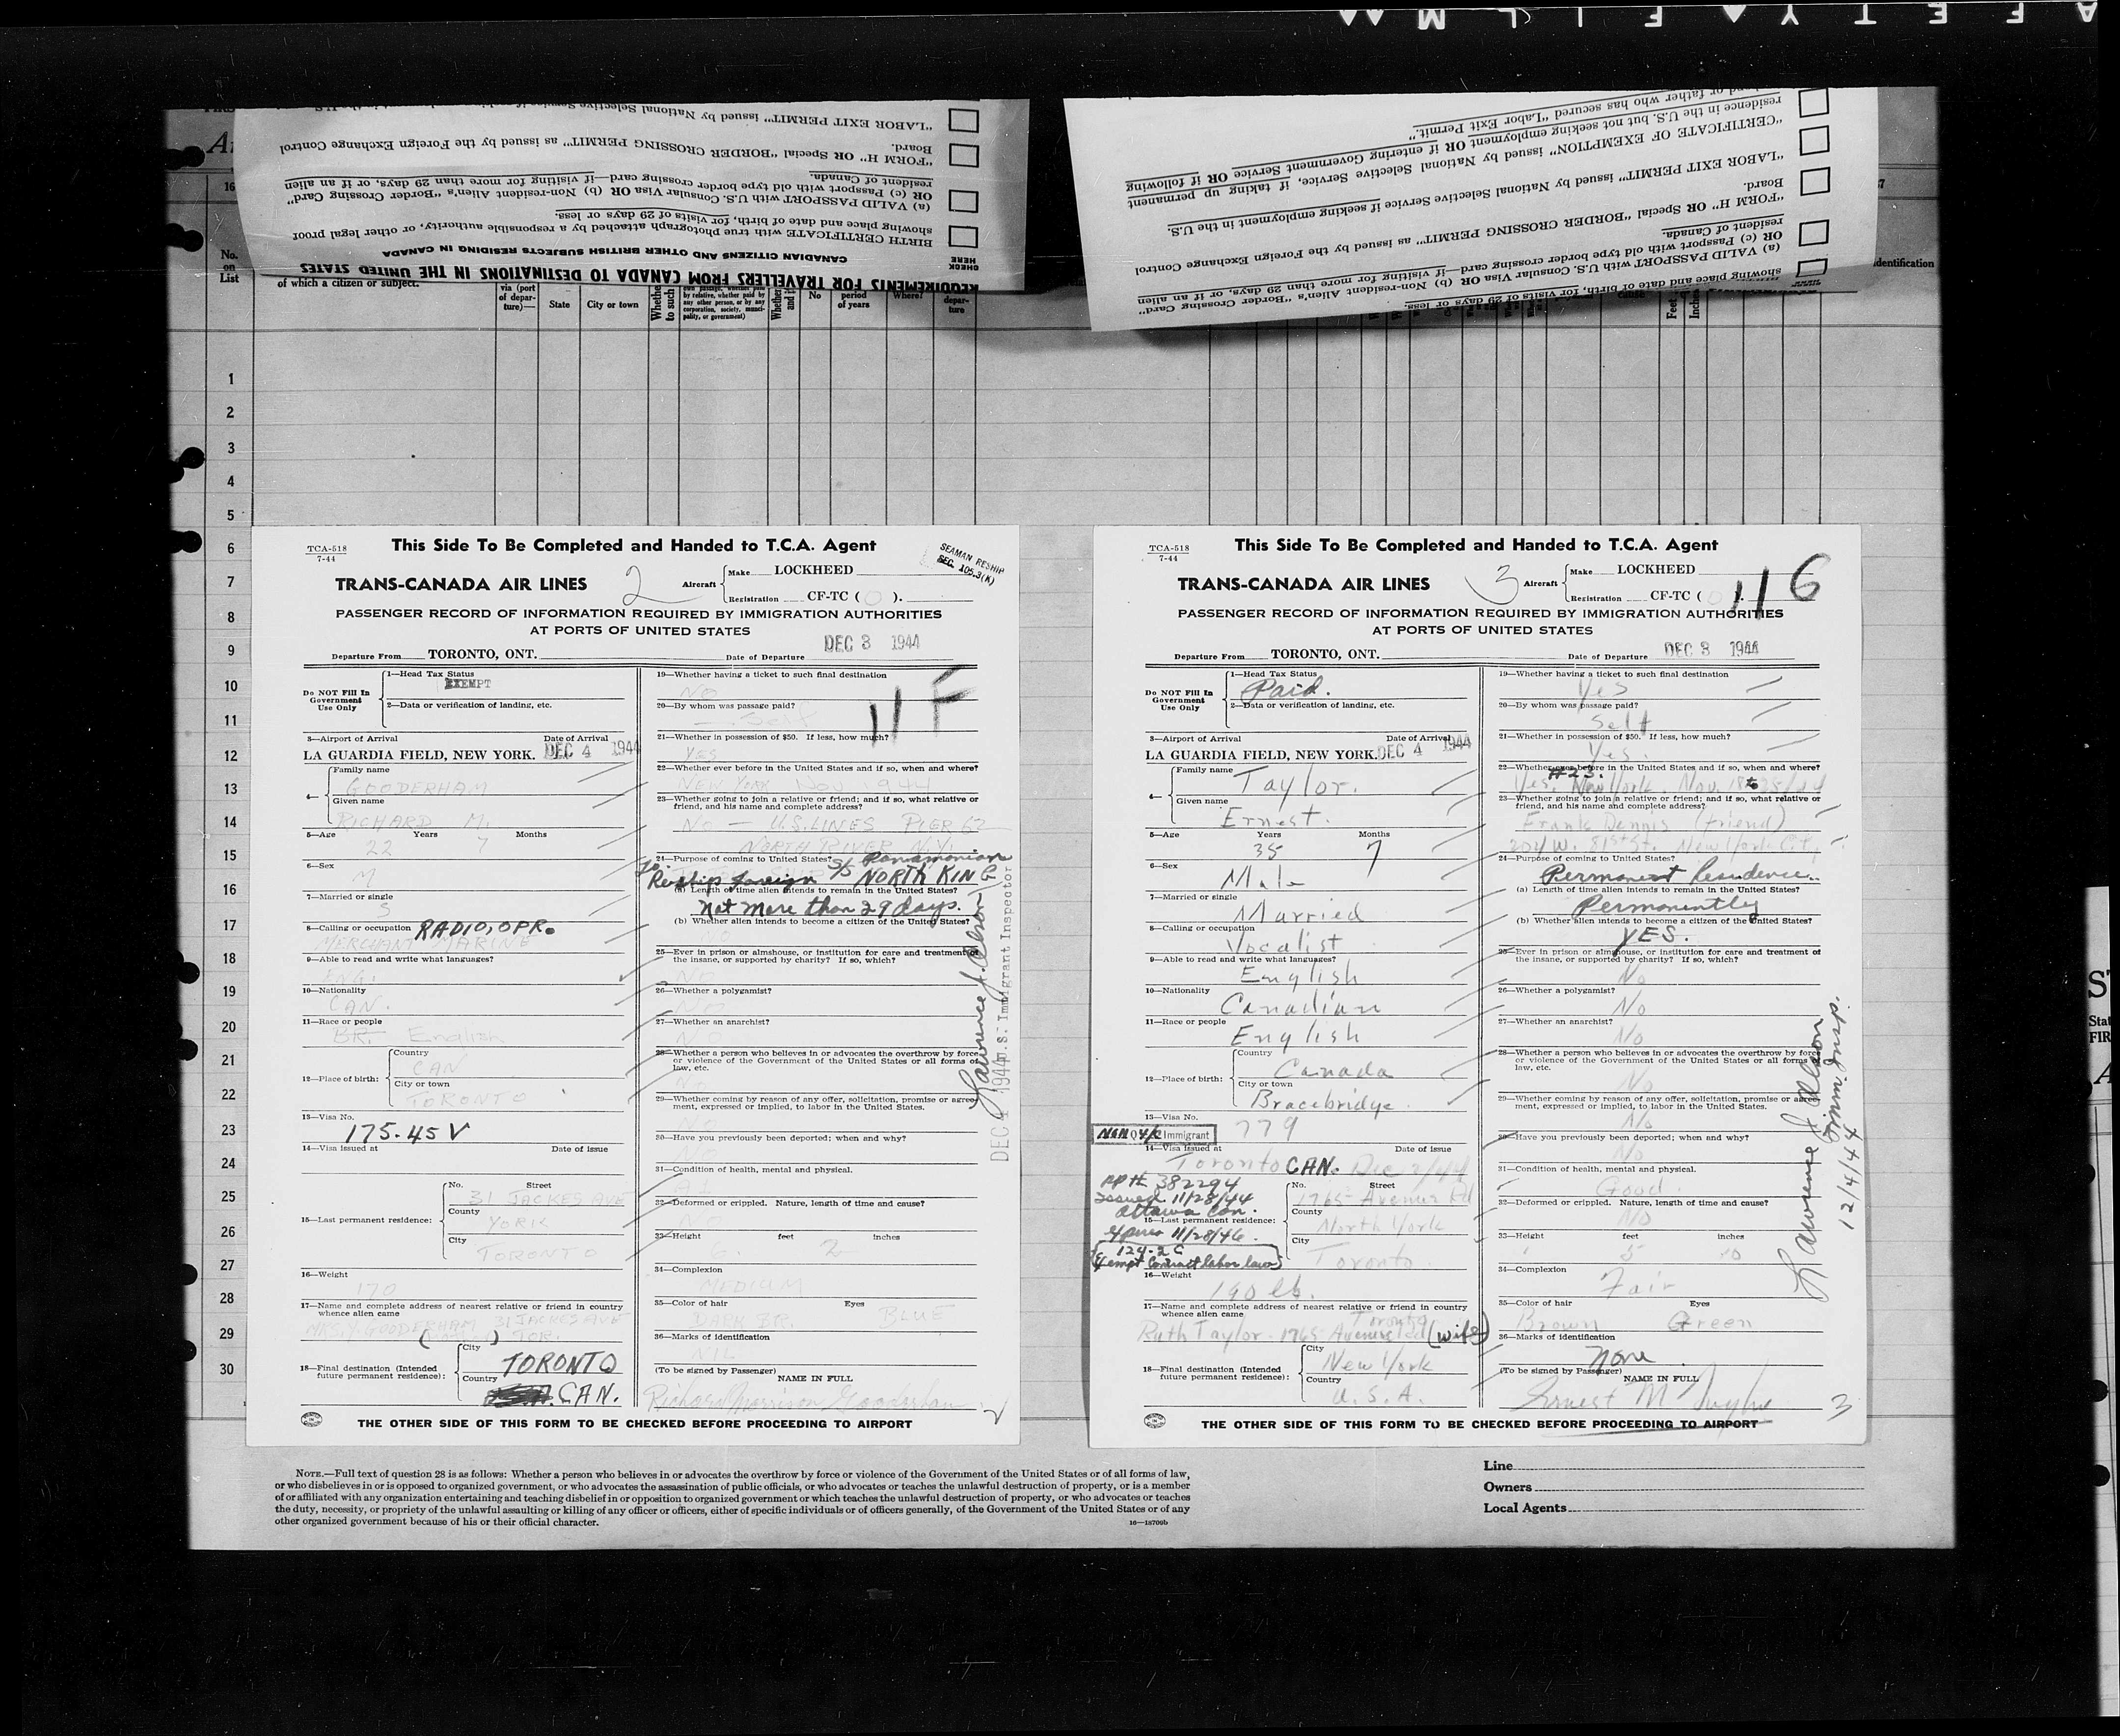 A F E T Y F I L M
"LABOR EXIT PERMIT" issued by National Selective Service
"FORM H" OR Special "BORDER CROSSING PERMIT" as issued by the Foreign Exchange Control
Board.
(a) VALID PASSPORT with U.S. Consular Visa OR (b) Non-resident Alien's "Border Crossing Card"
OR (c) Passport with old type border crossing card—if visiting for more than 29 days, or if an alien
resident of Canada.
BIRTH CERTIFICATE with true photograph attached by a responsible authority, or other legal proof
showing place and date of birth, for visits of 29 days or less.
CHECK HERE
CANADIAN CITIZENS AND OTHER BRITISH SUBJECTS RESIDING IN CANADA
REQUIREMENTS FOR TRAVELLERS FROM CANADA TO DESTINATIONS IN THE UNITED STATES
or father who has secured "Labor Exit Permit."
residence in the U.S. but not seeking employment OR if entering Government Service OR if following
"CERTIFICATE OF EXEMPTION" issued by National Selective Service, if taking up permanent
"LABOR EXIT PERMIT" issued by National Selective Service if seeking employment in the U.S.
"FORM H" OR Special "BORDER CROSSING PERMIT" as issued by the Foreign Exchange Control
Board.
(a) VALID PASSPORT with U.S. Consular Visa OR (b) Non-resident Alien's "Border Crossing Card"
OR (c) Passport with old type border crossing card—if visiting for more than 29 days, or if an alien
resident of Canada.
showing place and date of birth, for visits of 29 days or less.
16
No. on List
of which a citizen or subject.
via (port of departure)—
State
City or town
No
period of years
Where?
departure
cause
Feet
Inches
identification
1
2
3
4
5
6
7
8
9
10
11
12
13
14
15
16
17
18
19
20
21
22
23
24
25
26
27
28
29
30
TCA-518
7-44
This Side To Be Completed and Handed to T.C.A. Agent
SEAMAN RESHIP
SEC. 105.3(K)
TRANS-CANADA AIR LINES
2
Aircraft
Make LOCKHEED
Registration CF-TC ( ).
PASSENGER RECORD OF INFORMATION REQUIRED BY IMMIGRATION AUTHORITIES
AT PORTS OF UNITED STATES
Departure From TORONTO, ONT.
Date of Departure DEC 3 1944
Do NOT Fill In Government Use Only
1—Head Tax Status
EXEMPT
2—Data or verification of landing, etc.
3—Airport of Arrival
Date of Arrival
LA GUARDIA FIELD, NEW YORK. DEC 4 1944
4—
Family name
GOODERHAM
Given name
RICHARD M.
5—Age Years Months
22 7
6—Sex
M
7—Married or single
S
8—Calling or occupation RADIO, OPR.
MERCHANT MARINE
9—Able to read and write what languages?
ENG.
10—Nationality
CAN.
11—Race or people
BR. English
12—Place of birth:
Country
CAN
City or town
TORONTO
13—Visa No.
175.45 V
14—Visa issued at Date of issue
15—Last permanent residence:
No. Street
31 JACKES AVE
County
YORK
City
TORONTO
16—Weight
170
17—Name and complete address of nearest relative or friend in country
whence alien came
GOODERHAM 31 JACKES AVE
TOR.
18—Final destination (Intended
future permanent residence):
City
TORONTO
Country
CAN.
19—Whether having a ticket to such final destination
NO
20—By whom was passage paid?
Self
11 F
21—Whether in possession of $50. If less, how much?
YES
22—Whether ever before in the United States and if so, when and where?
NEW YORK NOV 1944
23—Whether going to join a relative or friend; and if so, what relative or
friend, and his name and complete address?
NO — U.S. LINES PIER 62
NORTH RIVER N.Y.
24—Purpose of coming to United States?
To Reship foreign S/S Panamanian NORTH KING
(a) Length of time alien intends to remain in the United States?
Not more than 29 days.
(b) Whether alien intends to become a citizen of the United States?
NO
25—Ever in prison or almshouse, or institution for care and treatment of
the insane, or supported by charity? If so, which?
NO
26—Whether a polygamist?
NO
27—Whether an anarchist?
28—Whether a person who believes in or advocates the overthrow by force
or violence of the Government of the United States or all forms of
law, etc.
NO
29—Whether coming by reason of any offer, solicitation, promise or agree-
ment, expressed or implied, to labor in the United States.
NO
30—Have you previously been deported; when and why?
NO
31—Condition of health, mental and physical.
32—Deformed or crippled. Nature, length of time and cause?
NO
33—Height feet inches
6 2
34—Complexion
MEDIUM
35—Color of hair Eyes
DARK BR. BLUE
36—Marks of identification
NIL
(To be signed by Passenger) NAME IN FULL
Richard Morrison Gooderham
2
Lawrence J. Olson
DEC 4 1944 U.S. Immigrant Inspector
THE OTHER SIDE OF THIS FORM TO BE CHECKED BEFORE PROCEEDING TO AIRPORT
TCA-518
7-44
This Side To Be Completed and Handed to T.C.A. Agent
TRANS-CANADA AIR LINES
3
Aircraft
Make LOCKHEED
Registration CF-TC ( ).
116
PASSENGER RECORD OF INFORMATION REQUIRED BY IMMIGRATION AUTHORITIES
AT PORTS OF UNITED STATES
Departure From TORONTO, ONT.
Date of Departure DEC 3 1944
Do NOT Fill In Government Use Only
1—Head Tax Status
Paid.
2—Data or verification of landing, etc.
3—Airport of Arrival
Date of Arrival
LA GUARDIA FIELD, NEW YORK. DEC 4 1944
4—
Family name
Taylor.
Given name
Ernest.
5—Age Years Months
35 7
6—Sex
Male
7—Married or single
Married
8—Calling or occupation
Vocalist
9—Able to read and write what languages?
English
10—Nationality
Canadian
11—Race or people
English
12—Place of birth:
Country
Canada
City or town
Bracebridge.
13—Visa No.
779
Immigrant
14—Visa issued at Date of issue
Toronto CAN. Dec 2/44
PP # 382294
Issued 11/28/44
Ottawa Can.
Expires 11/28/46.
124-2C
Exempt Contract labor laws
15—Last permanent residence:
No. Street
1765 Avenue Rd
County
North York
City
Toronto.
16—Weight
190 lb.
17—Name and complete address of nearest relative or friend in country
whence alien came
Toronto
Ruth Taylor - 1765 Avenue Rd (wife)
18—Final destination (Intended
future permanent residence):
City
New York
Country
U.S.A.
19—Whether having a ticket to such final destination
Yes
20—By whom was passage paid?
Self
21—Whether in possession of $50. If less, how much?
Yes.
22—Whether ever before in the United States and if so, when and where?
#23.
Yes, New York. Nov. 18 to 25/44
23—Whether going to join a relative or friend; and if so, what relative or
friend, and his name and complete address?
Frank Dennis (friend)
204 W. 81st St. New York City
24—Purpose of coming to United States?
Permanent Residence.
(a) Length of time alien intends to remain in the United States?
Permanently
(b) Whether alien intends to become a citizen of the United States?
YES.
25—Ever in prison or almshouse, or institution for care and treatment of
the insane, or supported by charity? If so, which?
No
26—Whether a polygamist?
No
27—Whether an anarchist?
No
28—Whether a person who believes in or advocates the overthrow by force
or violence of the Government of the United States or all forms of
law, etc.
No
29—Whether coming by reason of any offer, solicitation, promise or agree-
ment, expressed or implied, to labor in the United States.
No
30—Have you previously been deported; when and why?
No
31—Condition of health, mental and physical.
Good.
32—Deformed or crippled. Nature, length of time and cause?
No
33—Height feet inches
5 10
34—Complexion
Fair
35—Color of hair Eyes
Brown Green
36—Marks of identification
None.
(To be signed by Passenger) NAME IN FULL
Ernest M Taylor
3
Lawrence J. Olson
Imm. Insp.
12/4/44
THE OTHER SIDE OF THIS FORM TO BE CHECKED BEFORE PROCEEDING TO AIRPORT
NOTE.—Full text of question 28 is as follows: Whether a person who believes in or advocates the overthrow by force or violence of the Government of the United States or of all forms of law,
or who disbelieves in or is opposed to organized government, or who advocates the assassination of public officials, or who advocates or teaches the unlawful destruction of property, or is a member
of or affiliated with any organization entertaining and teaching disbelief in or opposition to organized government or which teaches the unlawful destruction of property, or who advocates or teaches
the duty, necessity, or propriety of the unlawful assaulting or killing of any officer or officers, either of specific individuals or of officers generally, of the Government of the United States or of any
other organized government because of his or their official character.
16—18700b
Line
Owners
Local Agents